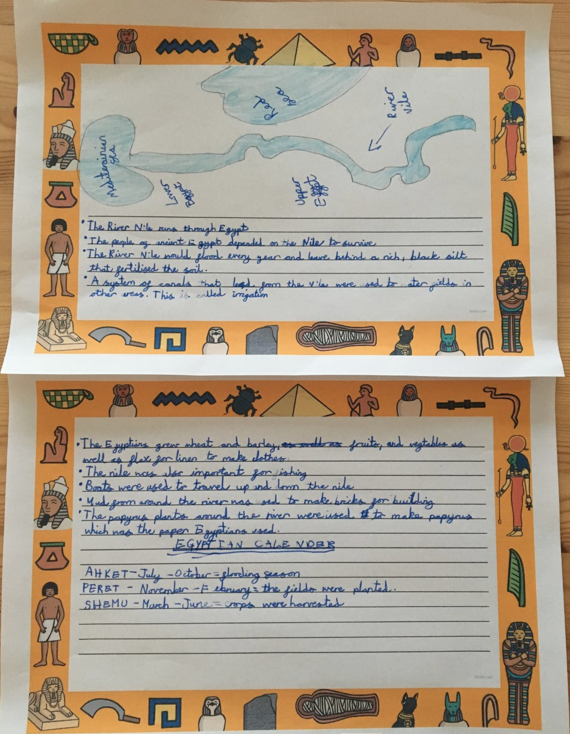 Red
Sea
River
Nile
Mediterainian
Sea
Lower
Egypt
Upper
Egypt
• The River Nile runs through Egypt
• The people of anient Egypt depended on the Nile to survive
• The River Nile would flood every year and leave behind a rich, black silt
that fertilised the soil.
• A system of canals that lead from the Nile were used to water fields in
other areas. This is called irrigation
• The Egyptians grew wheat and barley, as well as fruits, and vegtables as
well as flax for linen to make clothes.
• The nile was also important for fishing
• Boats were used to travel up and down the nile
• Mud from around the river was used to make bricks for building
• The papyrus plants around the river were used to make papyrus
which was the paper Egyptians used.
EGYPTIAN CALENDER
AHKET - July - October = flooding season
PERET - November - February = the fields were planted.
SHEMU - March - June = crops were harvested